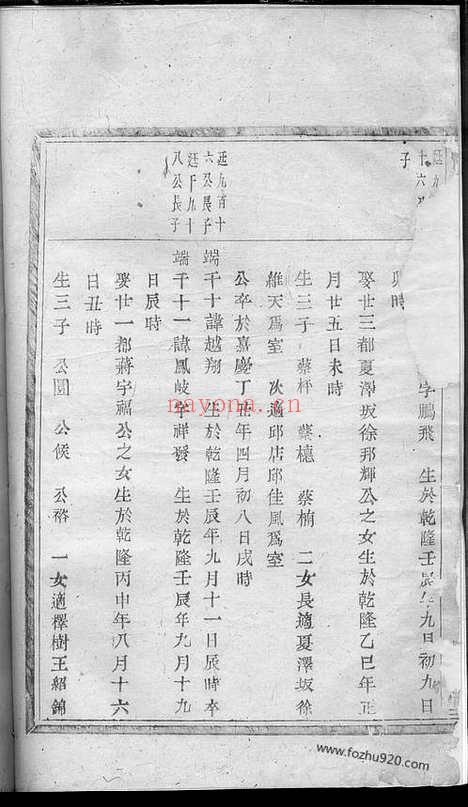 十六
子
字鵬飛 生於乾隆壬辰年九日初九日
時
娶世三都夏澤坂徐那輝公之女生於乾隆乙巳年正
月廿五日未時
生三子 蔡枰 蔡櫶 蔡楠 二女長適夏澤坂徐
維天爲室 次適邱店邱佳風爲室
公卒於嘉慶丁丑年四月初八日戌時
廷九百十
六公長子
端千十諱越翔 生於乾隆壬辰年九月十一日辰時卒
廷千九十
八公長子
端千十一諱鳳岐字祥發 生於乾隆壬辰年九月十九
日辰時
娶世一都蔣宇福公之女生於乾隆丙申年八月十六
日丑時
生三子 公圜 公候 公裕 一女適檡樹王紹錦
nayona.cn
www.fozhu920.com